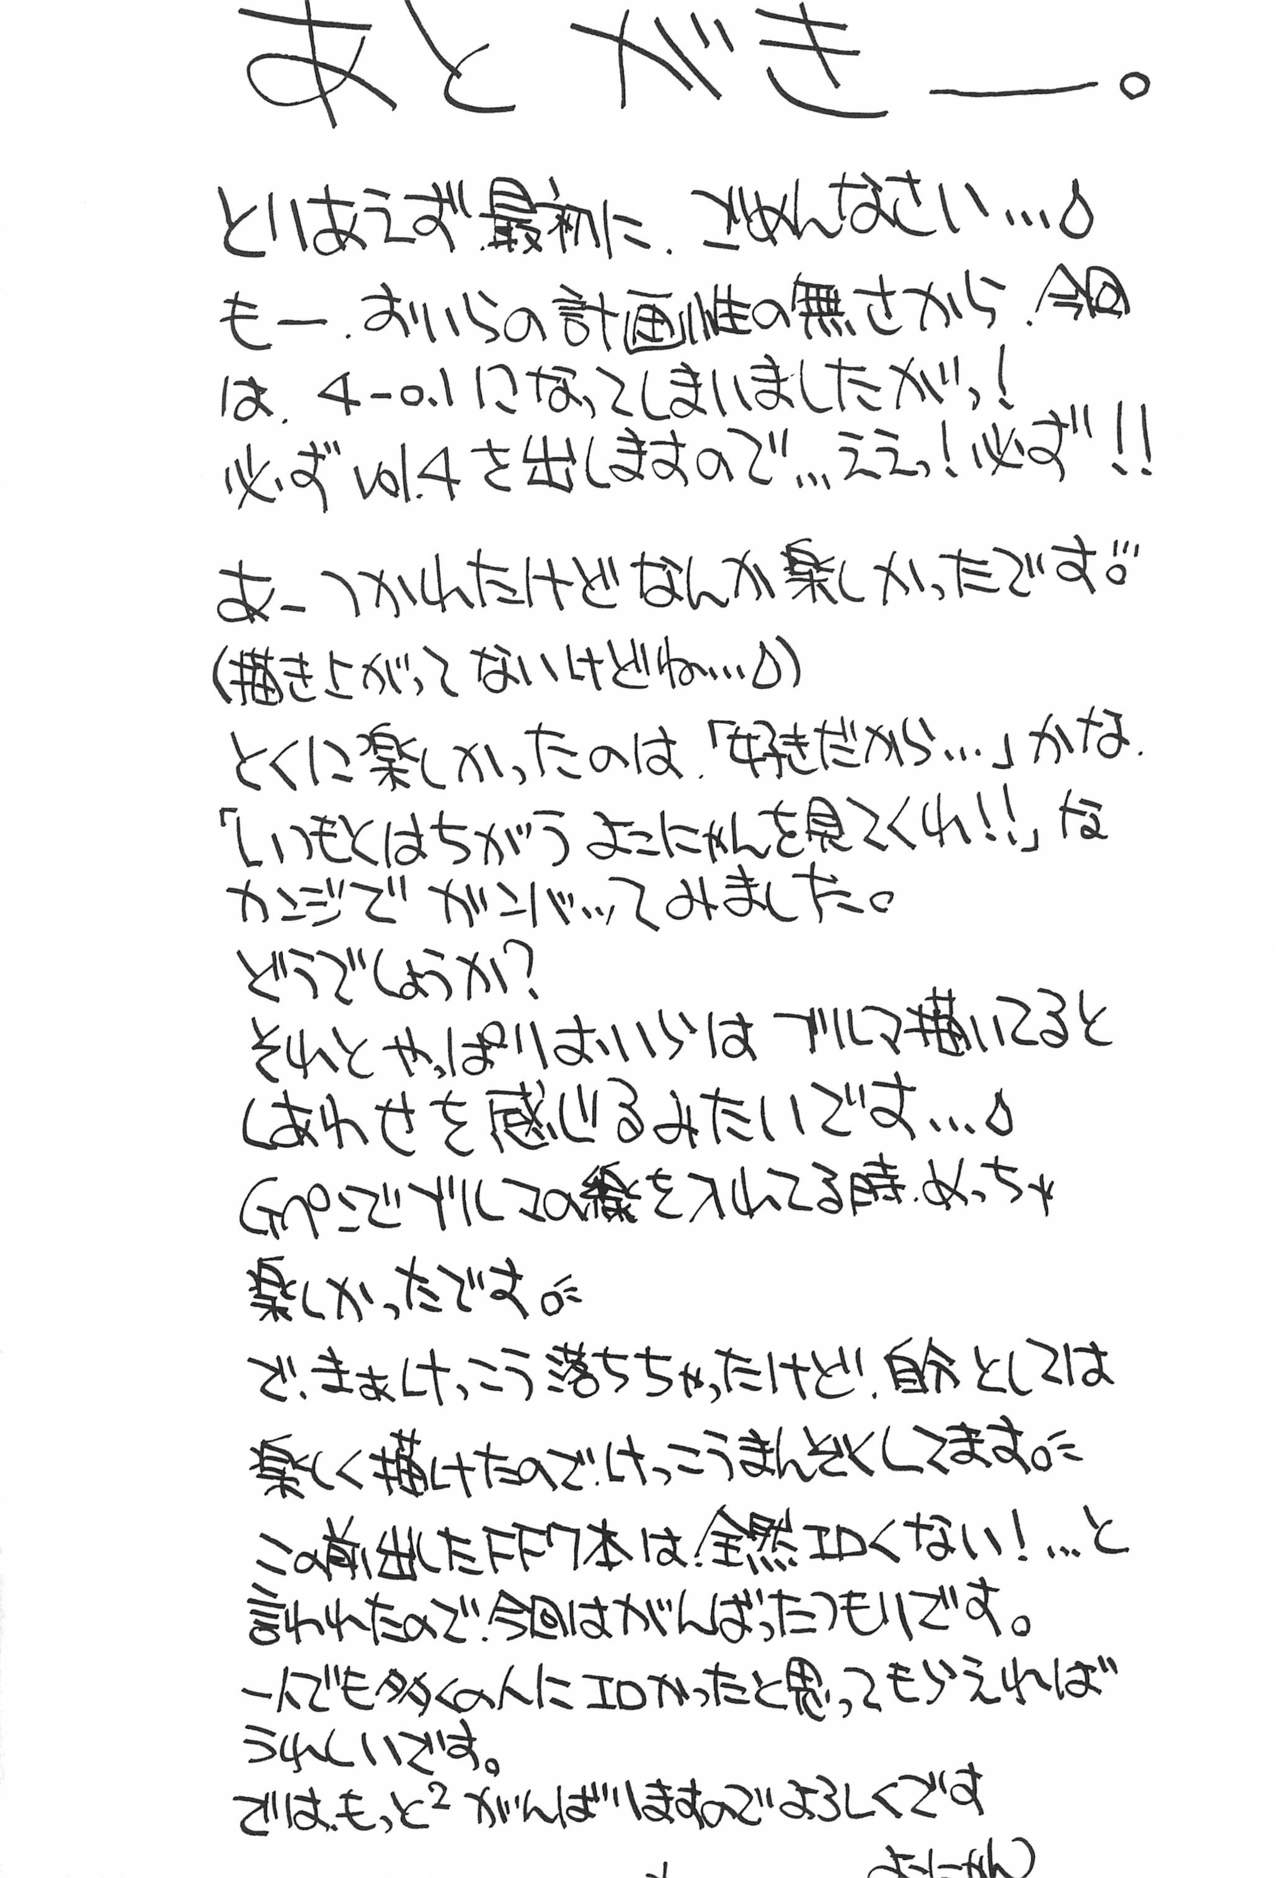 あとがきー。
とりあえず最初に、ごめんなさい…
もー、おいらの計画性の無さから、今回
は、4-0.1になってしまいましたがっ!
必ずvol.4を出しますので…ええっ!必ず!!
あーつかれたけどなんか楽しかったです。
(描き上がってないけどね…)
とくに楽しかったのは、「好きだから…」かな、
「いつもとはちがうよこにゃんを見てくれ!!」な
カンジでガンバッてみました。
どうでしょうか?
それとやっぱりおいらはブルマ描いてると
しあわせを感じるみたいです…
Gペンでブルマの線を入れてる時、めっちゃ
楽しかったです。
で、まぁけっこう落ちちゃったけど、自分としては
楽しく描けたので、けっこうまんぞくしてます。
この前出したFF7本は、全然エロくない!…と
言われたので、今回はがんばったつもりです。
一人でも多くの人にエロかったと思ってもらえれば
うれしいです。
では、もっと²がんばりますのでよろしくです